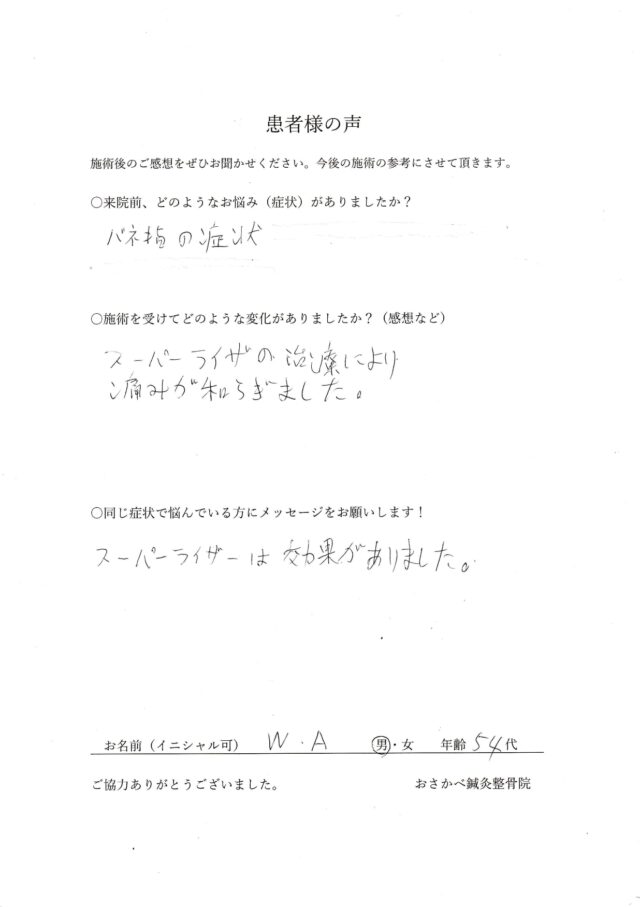 患者様の声
施術後のご感想をぜひお聞かせください。今後の施術の参考にさせて頂きます。
〇来院前、どのようなお悩み（症状）がありましたか？
バネ指の症状
〇施術を受けてどのような変化がありましたか？（感想など）
スーパーライザの治療により
痛みが和らぎました。
〇同じ症状で悩んでいる方にメッセージをお願いします！
スーパーライザーは効果がありました。
お名前（イニシャル可） W.A 男・女 年齢 54代
ご協力ありがとうございました。 おさかべ鍼灸整骨院